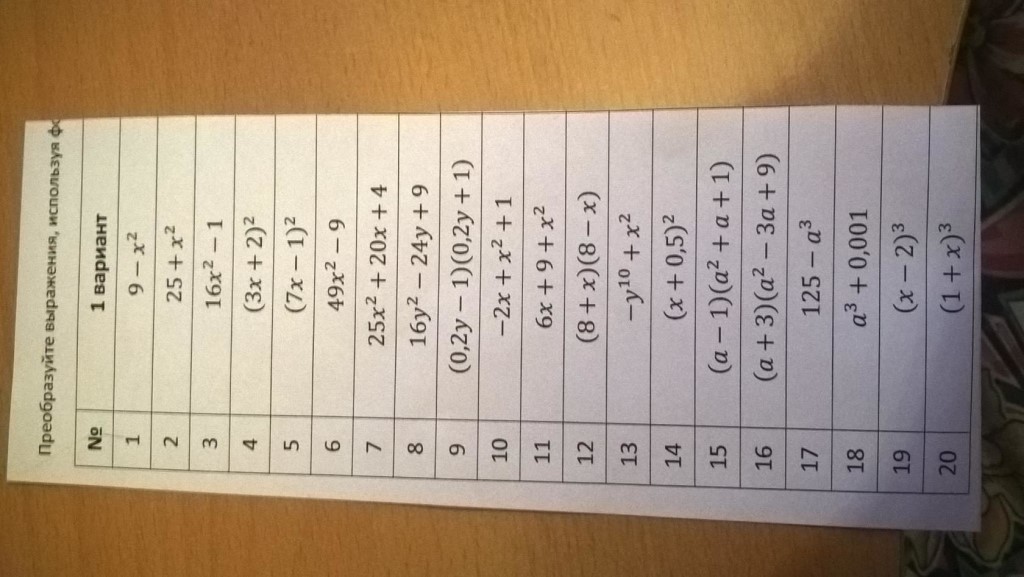 Преобразуйте выражения, используя
№ 1 вариант
1 9 − x²
2 25 + x²
3 16x² − 1
4 (3x + 2)²
5 (7x − 1)²
6 49x² − 9
7 25x² + 20x + 4
8 16y² − 24y + 9
9 (0,2y − 1)(0,2y + 1)
10 −2x + x² + 1
11 6x + 9 + x²
12 (8 + x)(8 − x)
13 −y¹⁰ + x²
14 (x + 0,5)²
15 (a − 1)(a² + a + 1)
16 (a + 3)(a² − 3a + 9)
17 125 − a³
18 a³ + 0,001
19 (x − 2)³
20 (1 + x)³